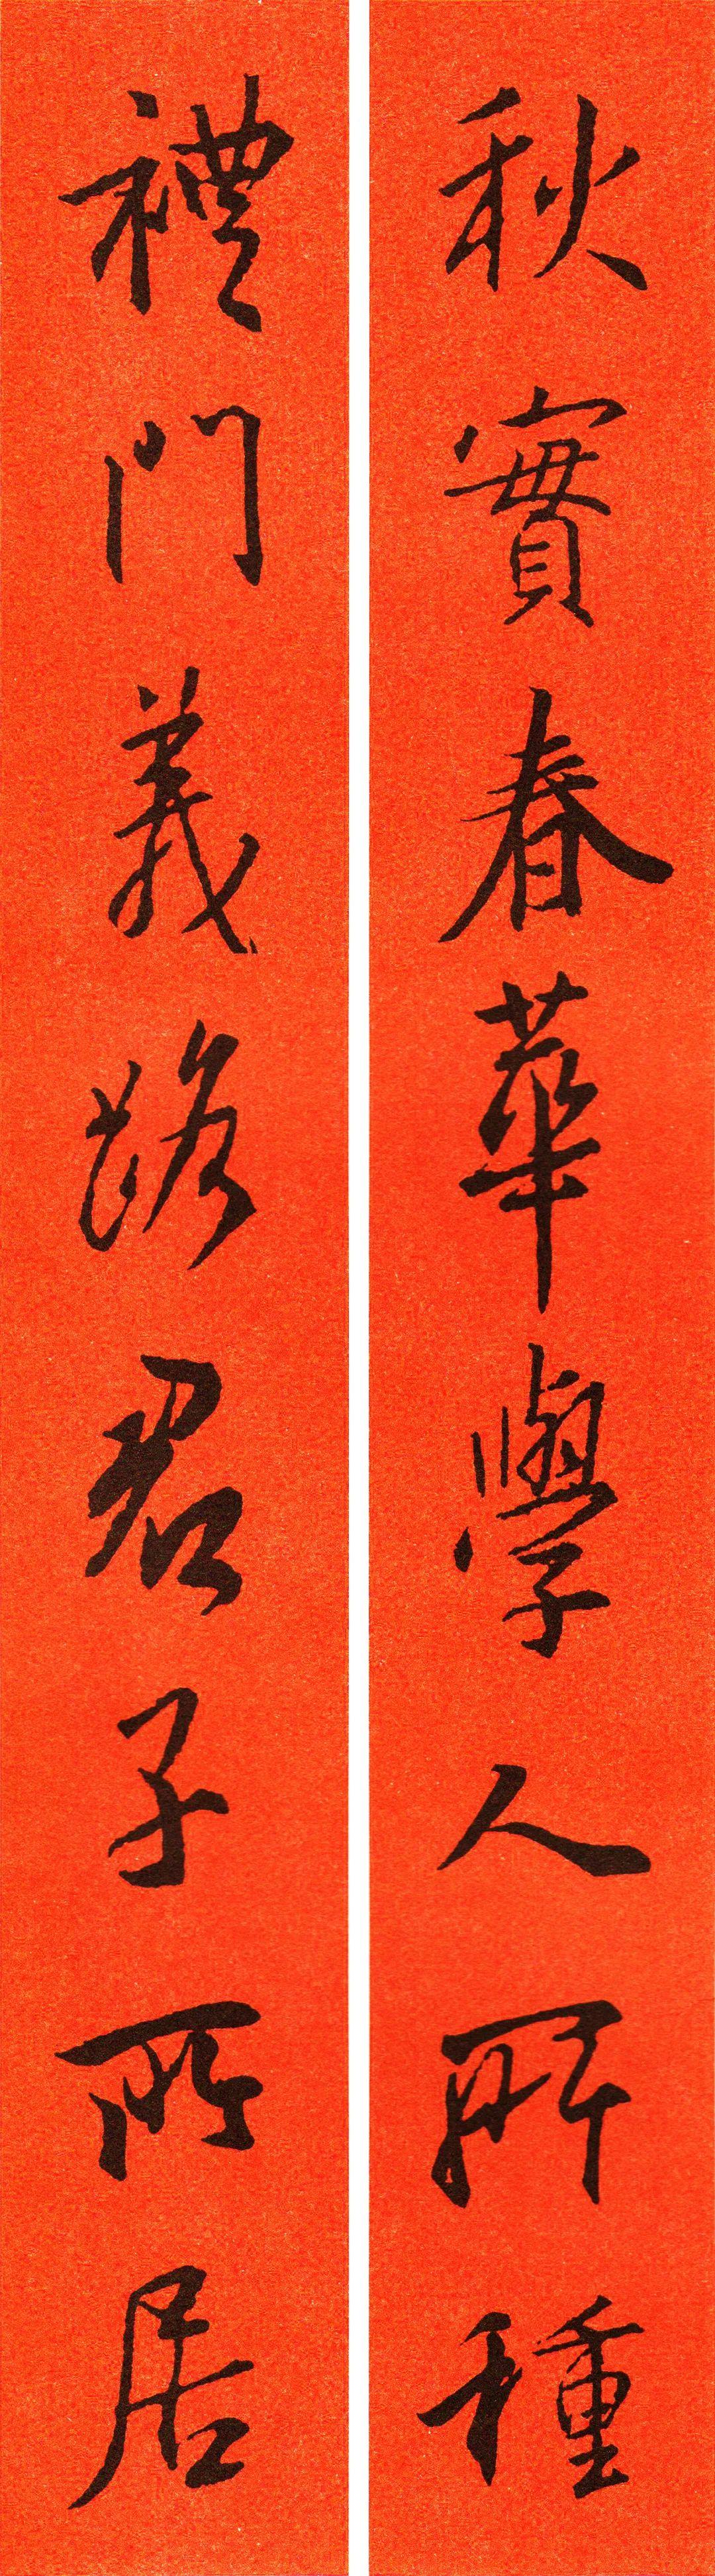 秋實春華學人所種
禮門義路君子所居